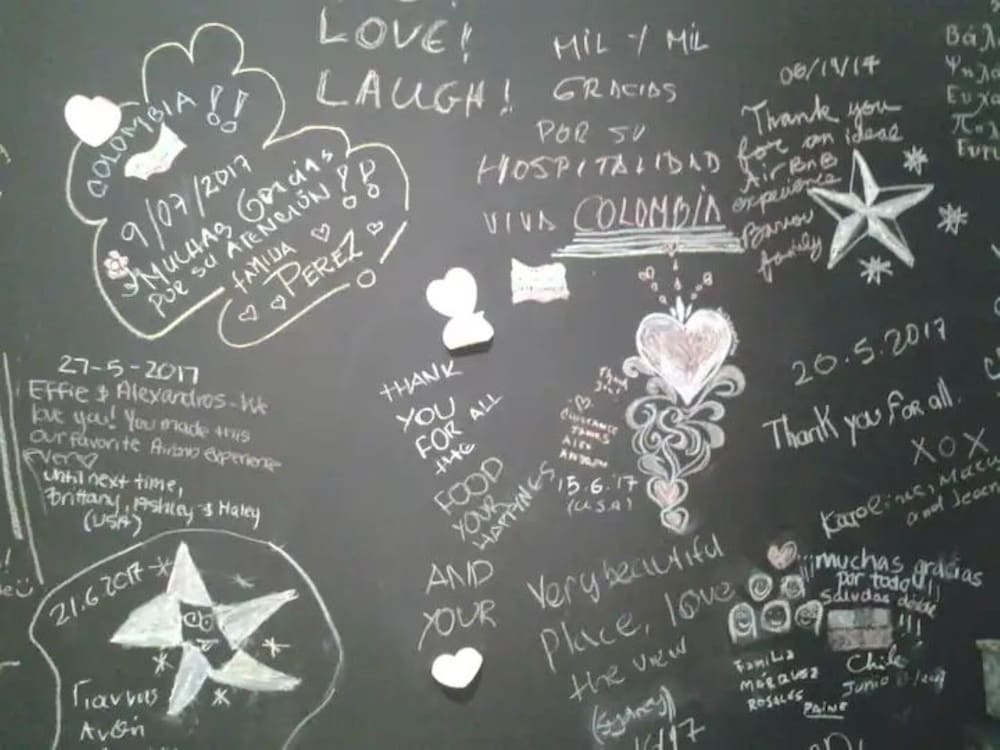 LOVE!
LAUGH!
COLOMBIA!!
9/07/2017
MUCHAS GRACIAS
POR SU ATENCIÓN!!
FAMILIA
PEREZ
MIL Y MIL
GRACIAS
POR SU
HOSPITALIDAD
VIVA COLOMBIA
Thank you
for an ideal
AirBnB
experience
family
27-5-2017
Effie & Alexandros - We
love you! You made this
our favorite Airbnb experience
EVER
until next time,
Brittany, Ashley & Haley
(USA)
THANK
YOU
FOR ALL
THE
FOOD
YOUR
HAPPINGS
AND
YOUR
15.6.'17
(USA)
20.5.2017
Thank you for all.
XOX
and
21.6.2017
Γιαννας
Very beautiful
place, love
the view
(Sydney)
¡¡¡muchas gracias
por todo!!
saludos desde
!!!
Chile
Junio
FAMILIA
MÁRQUEZ
ROSALES
PAINE